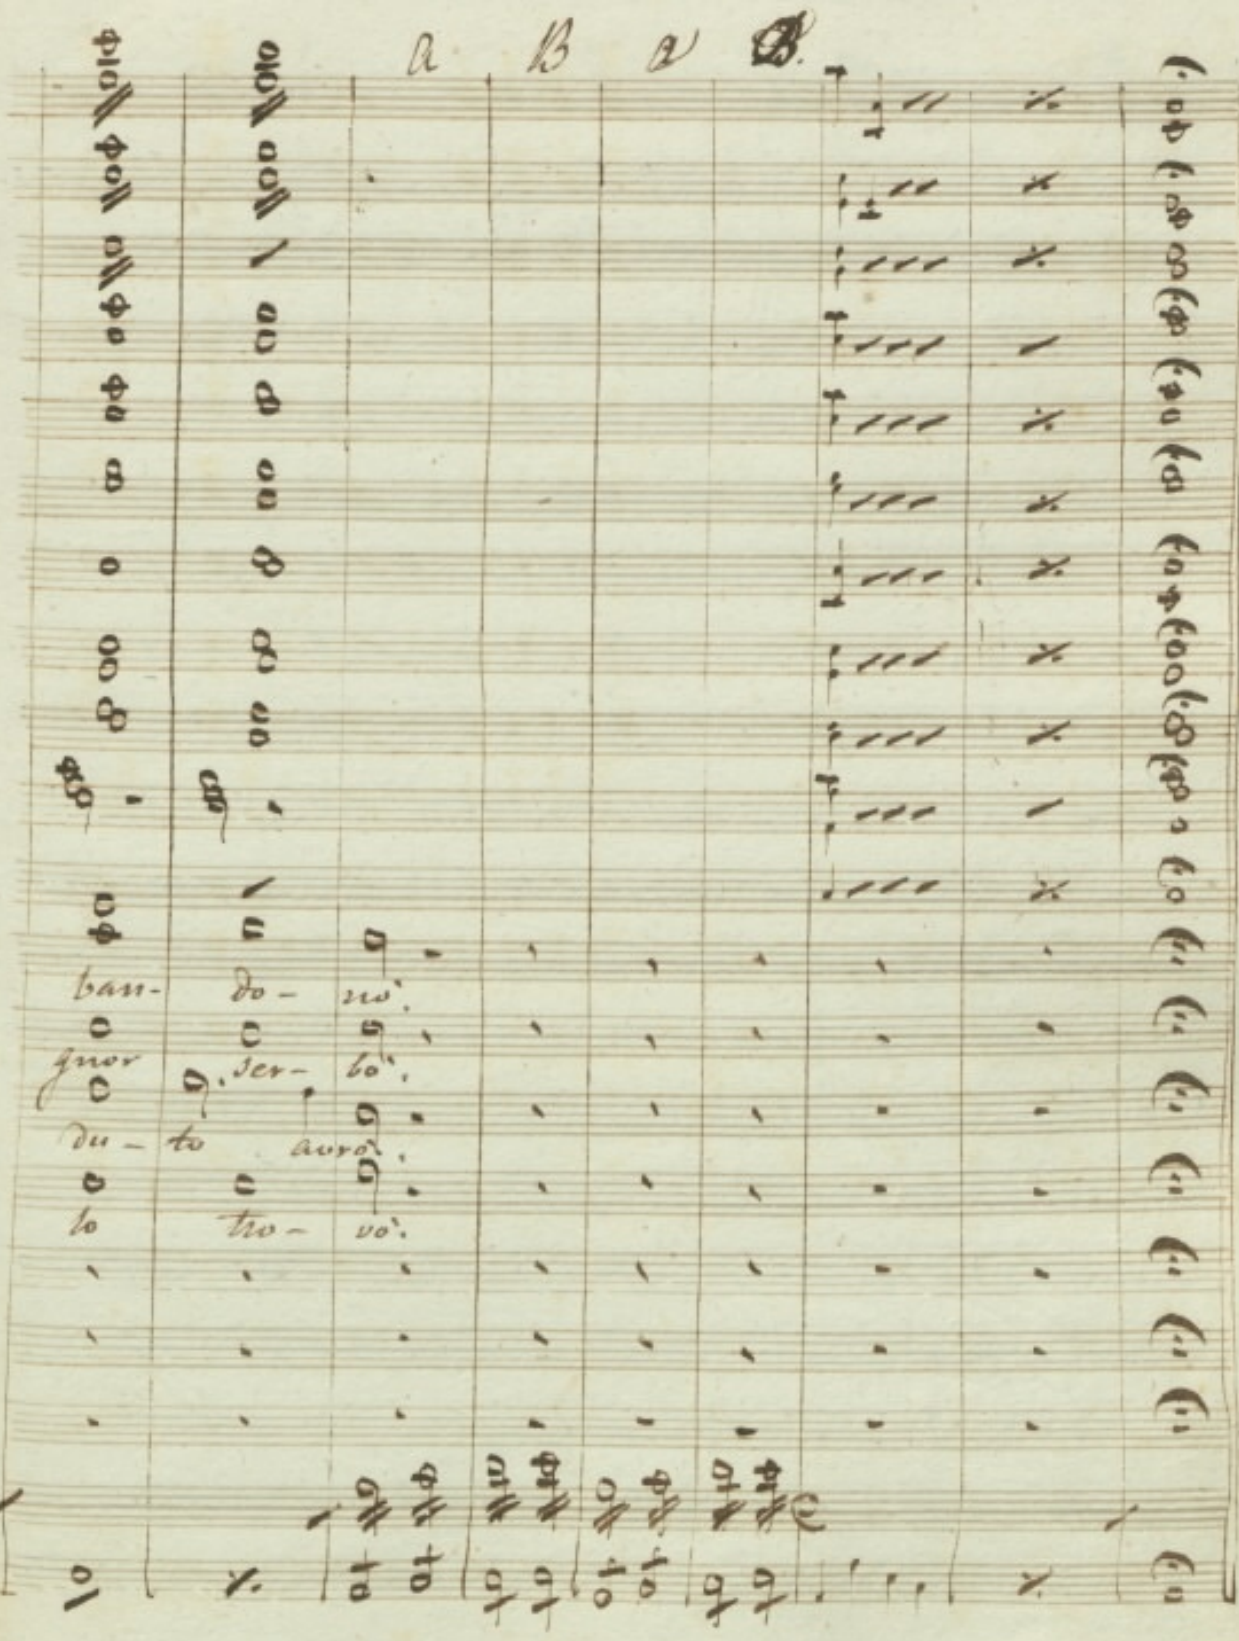 a B a B.
ban- do- nò.
gnor ser- bò.
du- to avrò.
lo tro- vò.